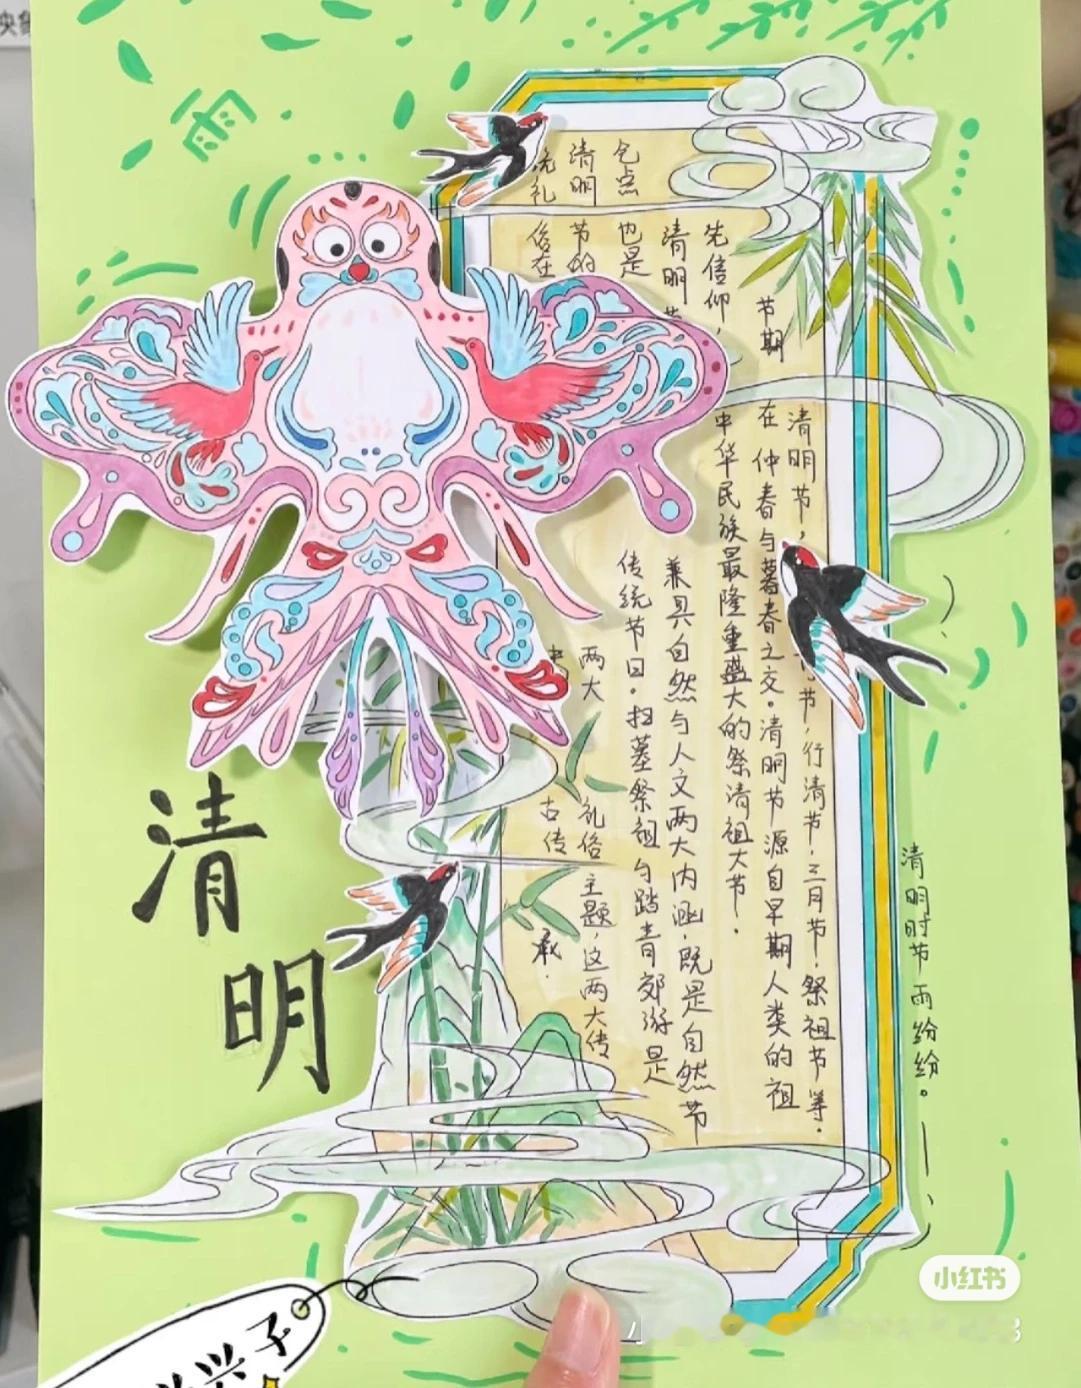 雨
清明
清明时节雨纷纷。
清明节, 节,行清节.三月节.祭祖节等.
节期在仲春与暮春之交。清明节源自早期人类的祖
先信仰, 中华民族最隆重盛大的祭清祖大节.
清明节兼具自然与人文两大内涵.既是自然节
气点也是传统节日.扫墓祭祖与踏青郊游是
清明节的两大礼俗主题,这两大传
统礼俗在 古传承.
兴子
小红书